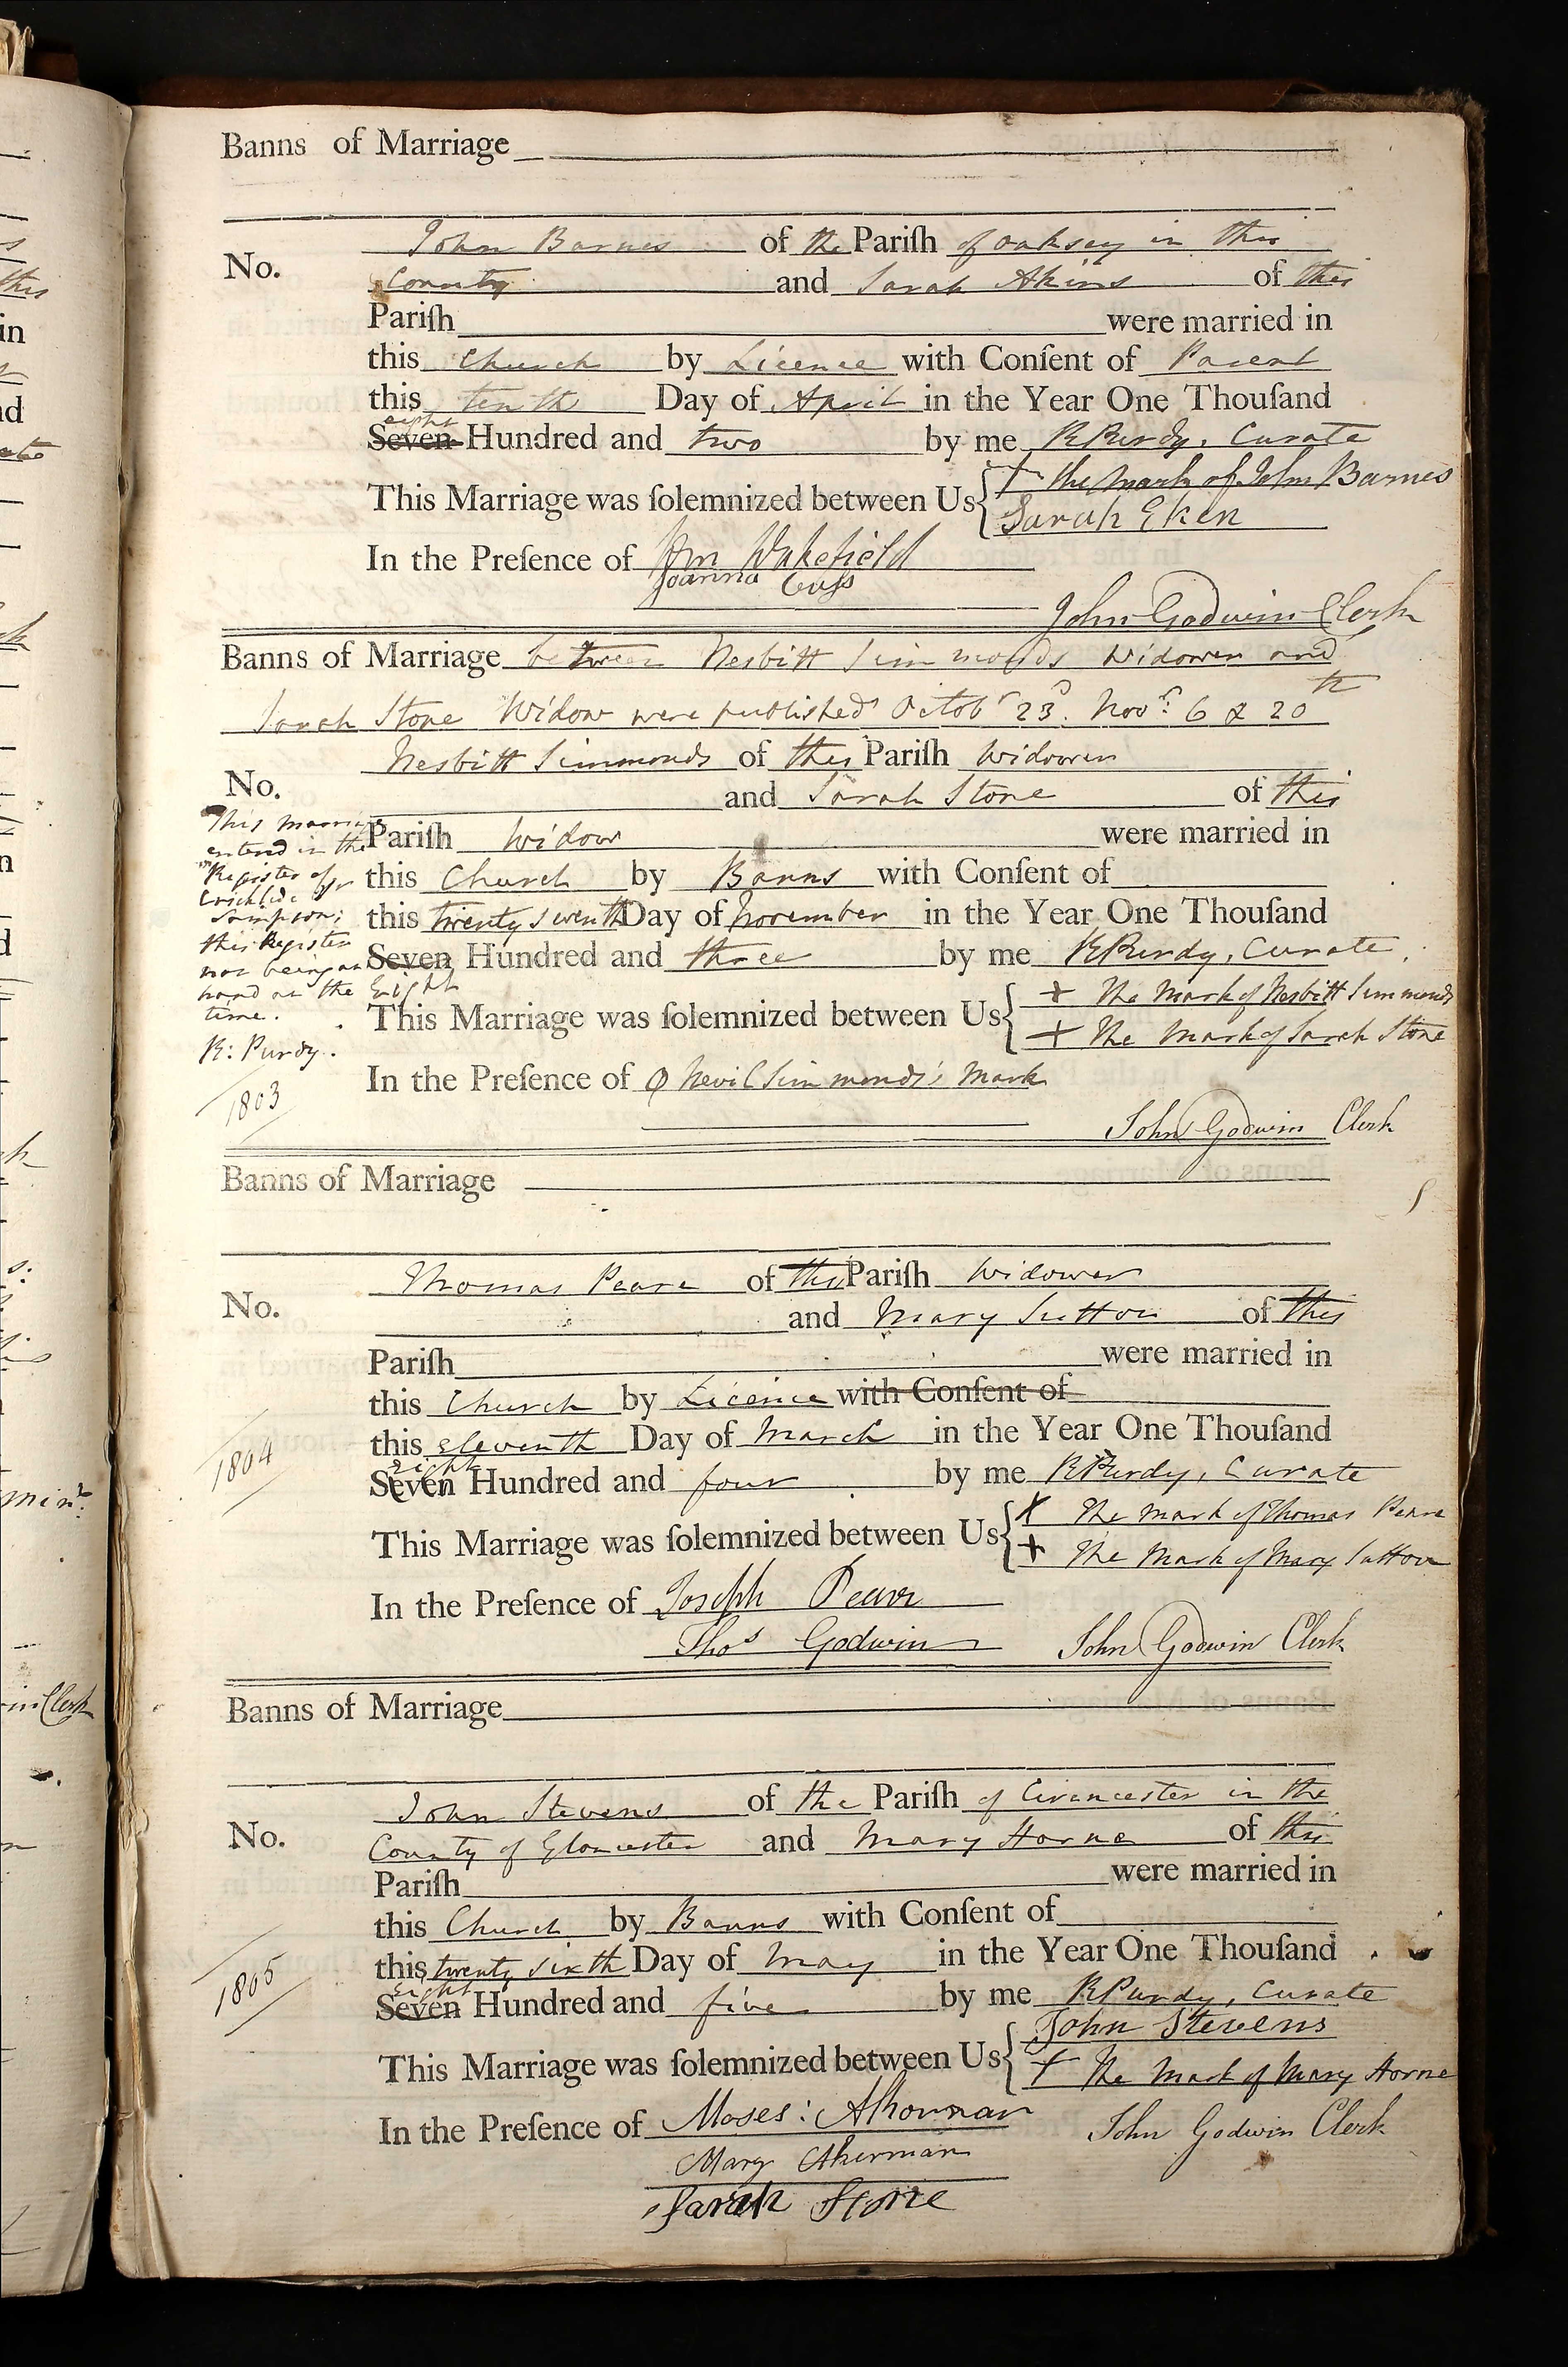 Banns of Marriage
John Barnes of the Pariſh of Oaksey in this
No. County and Sarah Akins of this
Pariſh were married in
this Church by Licence with Conſent of Parent
this tenth Day of April in the Year One Thouſand
eight
Seven Hundred and two by me R Purdy, Curate
This Marriage was ſolemnized between Us + the mark of John Barnes
Sarah Eken
In the Preſence of Wm Wakefield
Joanna Cuss
John Godwin Clerk
Banns of Marriage between Nesbitt Simmonds Widower and
Sarah Stone Widow were published Octobr 23d. Novr: 6 & 20th
Nesbitt Simmonds of this Pariſh Widower
No. and Sarah Stone of this
Pariſh Widow were married in
this Church by Banns with Conſent of
this twenty seventh Day of November in the Year One Thouſand
Seven Hundred and three by me R Purdy, Curate.
Eight
This Marriage was ſolemnized between Us + The Mark of Nesbitt Simmonds
+ The Mark of Sarah Stone
In the Preſence of O Nevil Simmonds's Mark
John Godwin Clerk
This marriage
enterd in the
Register of
Cricklade
Sampson;
this Register
not being at
hand at the
time.
R: Purdy.
1803
Banns of Marriage
Thomas Peare of this Pariſh Widower
No. and Mary Sutton of this
Pariſh were married in
this Church by Licence with Conſent of
this eleventh Day of March in the Year One Thouſand
1804
eight
Seven Hundred and four by me R Purdy, Curate
This Marriage was ſolemnized between Us X The Mark of Thomas Peare
+ The Mark of Mary Sutton
In the Preſence of Joseph Peare
Thos Godwin John Godwin Clerk
Banns of Marriage
John Stevens of the Pariſh of Cirencester in the
No. County of Gloucester and Mary Horne of this
Pariſh were married in
this Church by Banns with Conſent of
this twenty sixth Day of May in the Year One Thouſand
1805
eight
Seven Hundred and five by me R Purdy, Curate
This Marriage was ſolemnized between Us John Stevens
+ The Mark of Mary Horne
In the Preſence of Moses: Akorman John Godwin Clerk
Mary Akerman
Sarah Stone